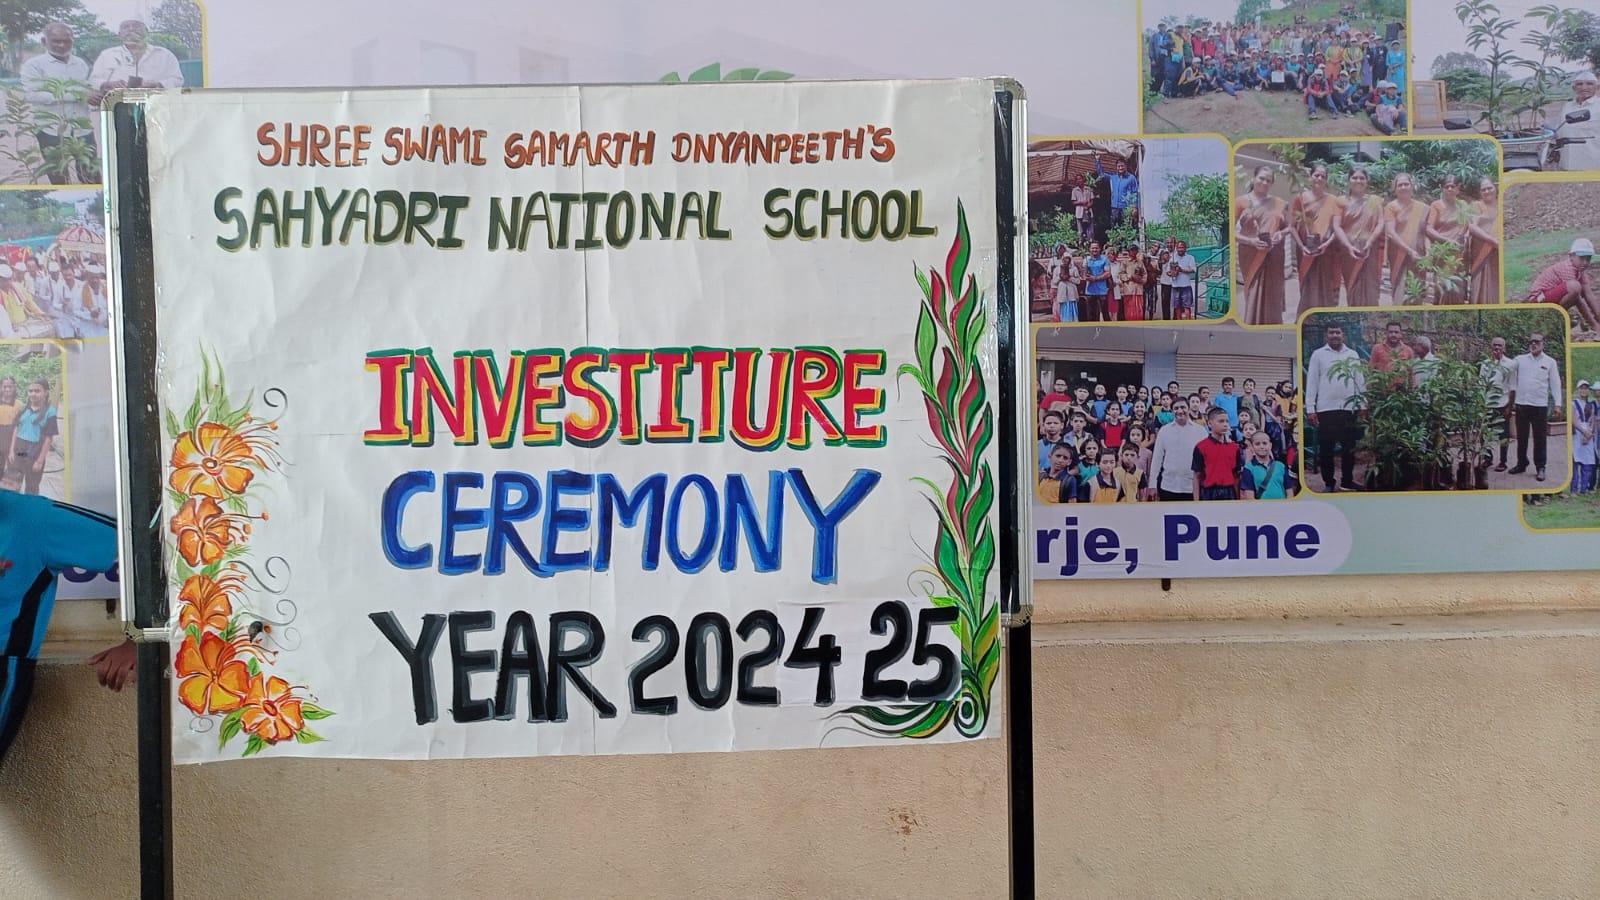 SHREE SWAMI SAMARTH DNYANPEETH'S
SAHYADRI NATIONAL SCHOOL
INVESTITURE
CEREMONY
YEAR 2024 25
rje, Pune